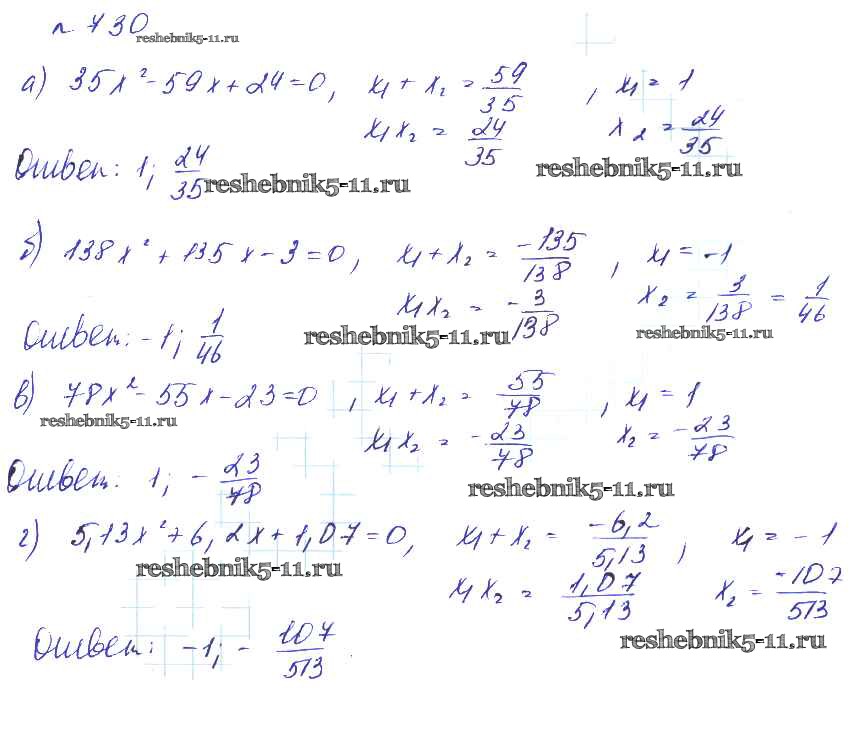 № 730
reshebnik5-11.ru
а) 35x² - 59x + 24 = 0, x₁ + x₂ = 59/35, x₁ = 1
x₁x₂ = 24/35 x₂ = 24/35
Ответ: 1; 24/35 reshebnik5-11.ru reshebnik5-11.ru
б) 138x² + 135x - 3 = 0, x₁ + x₂ = -135/138, x₁ = -1
x₁x₂ = -3/138 x₂ = 3/138 = 1/46
Ответ: -1; 1/46 reshebnik5-11.ru reshebnik5-11.ru
в) 78x² - 55x - 23 = 0, x₁ + x₂ = 55/78, x₁ = 1
reshebnik5-11.ru x₁x₂ = -23/78 x₂ = -23/78
Ответ: 1; -23/78 reshebnik5-11.ru
г) 5,13x² + 6,2x + 1,07 = 0, x₁ + x₂ = -6,2/5,13; x₁ = -1
reshebnik5-11.ru x₁x₂ = 1,07/5,13 x₂ = -107/513
Ответ: -1; -107/513. reshebnik5-11.ru